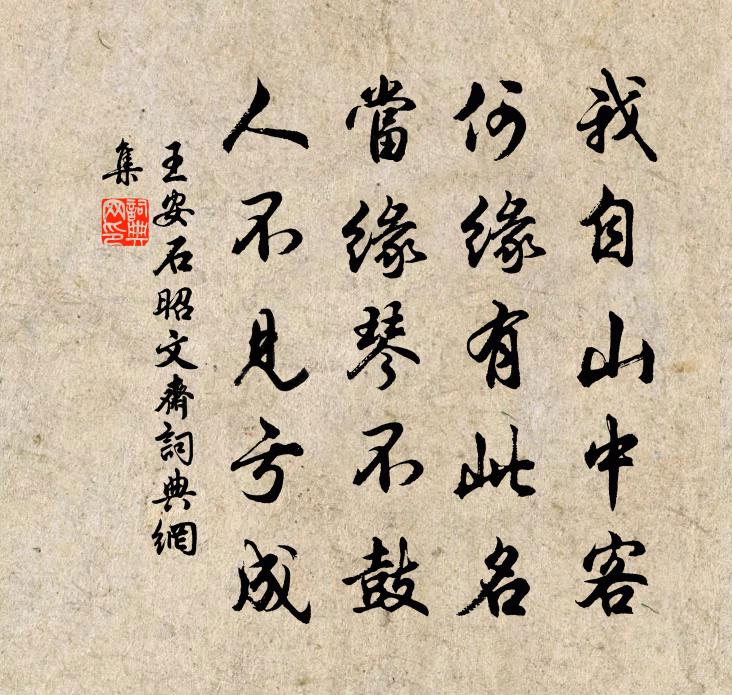 我自山中客
何緣有此名
當緣琴不鼓
人不見亏成
王安石昭文齋詞典網
集
詞典
網印